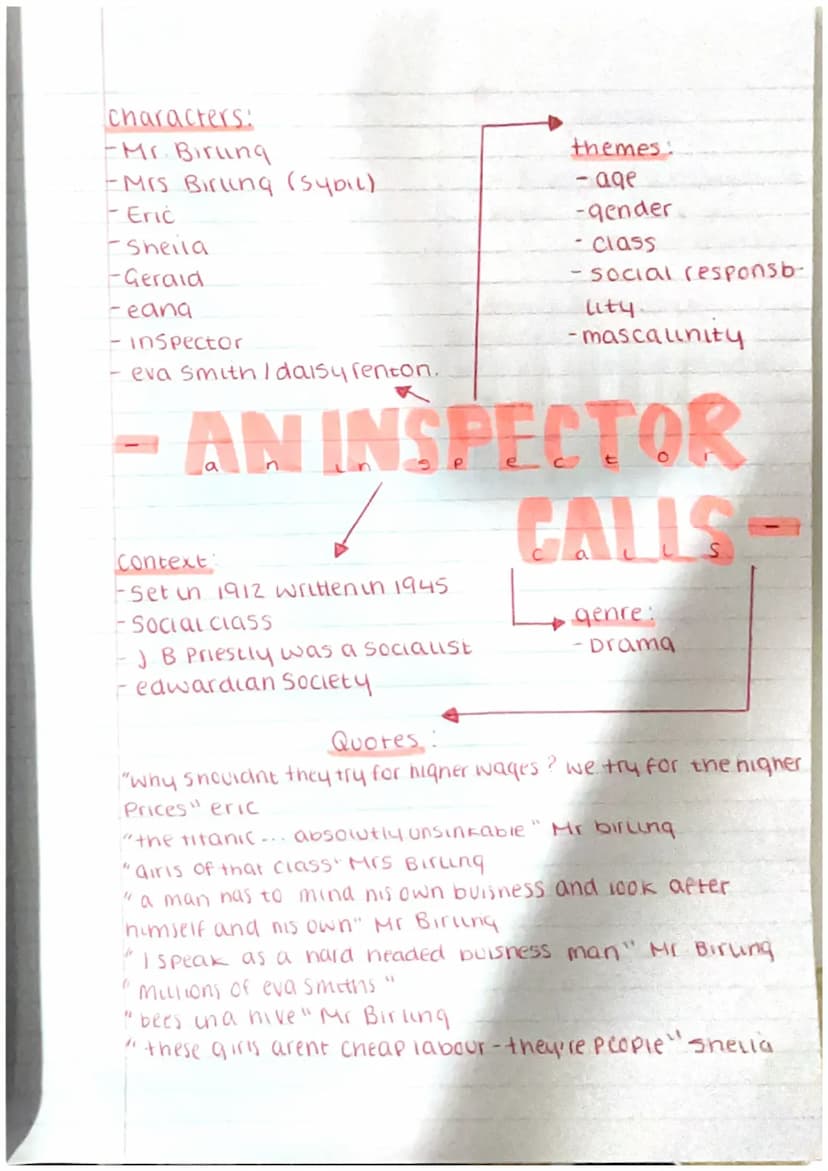 characters:
- Mr. Birling
- Mrs Birling (Sybil)
- Eric
- Sheila
- Gerald
- eana
- inspector
- eva smith / daisy renton.
themes:
- age
- gender
- class
- social responsb-
lity
- mascalinity
- AN INSPECTOR
an inspector
CALLS -
calls
Context:
- Set in 1912 written in 1945
- Social class
- J B Priestly was a socialist
- edwardian Society
genre:
- Drama
Quotes:
"why shouldnt they try for higher wages? we try for the higher
Prices" eric
"the titanic... absolutly unsinkable" Mr birling
"girls of that class" Mrs Birling
"a man has to mind his own buisness and look after
himself and his own" Mr Birling
"I speak as a hard headed buisness man" Mr Birling
"Millions of eva smiths"
"bees in a hive" Mr Birling
"these girls arent cheap labour - they're people" Sheila